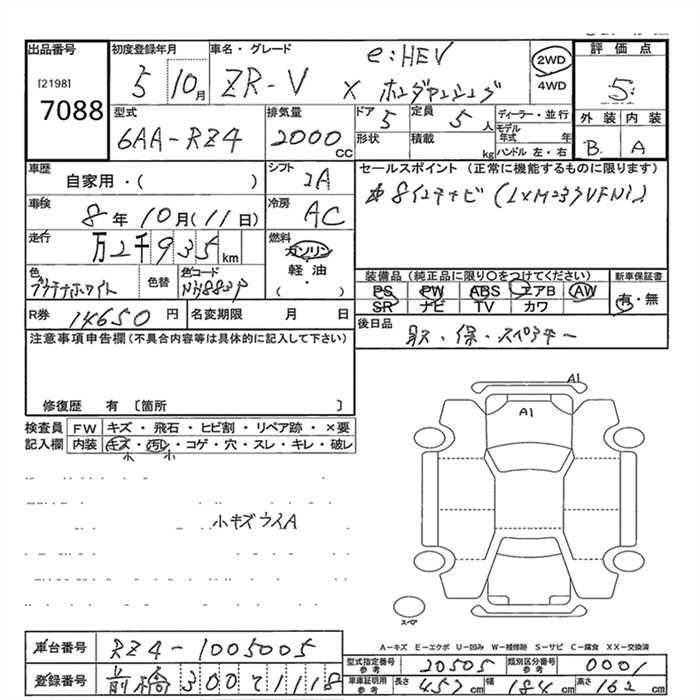 出品番号 初度登録年月 車名・グレード e:HEV 評価点
[2198] 5 10月 ZR-V X ホンダセンシング 2WD 4WD 5
7088 外装 内装
型式 排気量 ドア 定員 ディーラー・並行
6AA-RZ4 2000 CC 5 5人 モデル年式 年 B A
形状 積載 kg ハンドル 左・右
車歴 シフト セールスポイント (正常に機能するものに限ります)
自家用・( ) IA 8インチナビ (LXM-237VFNi)
車検 冷房
8年10月(11日) AC
走行 燃料
万2千935km ガソリン
色 色替 色コード 軽油 装備品 (純正品に限り○をつけてください) 新車保証書
プラチナホワイト NH883P ・( ) PS PW ABS エアB AW 有・無
SR ナビ TV カワ
R券 14650円 名変期限 月 日 後日品
取・保・スペアキー
注意事項申告欄(不具合内容等は具体的に記入して下さい)
A1
A1
修復歴 有 〔箇所 〕
検査員 FW キズ・飛石・ヒビ割・リペア跡・×要
記入欄 内装 キズ・汚レ・コゲ・穴・スレ・キレ・破レ
小 小
小キズウスA
スペア
A-キズ E-エクボ U-凹み W-補修跡 S-サビ C-腐食 XX-交換済
車台番号 RZ4-1005005
型式指定番号 参考 20505 類別区分番号 参考 0001
登録番号 前橋 300 て 1118
車庫証明用 参考 長さ 457cm 幅 184cm 高さ 162cm